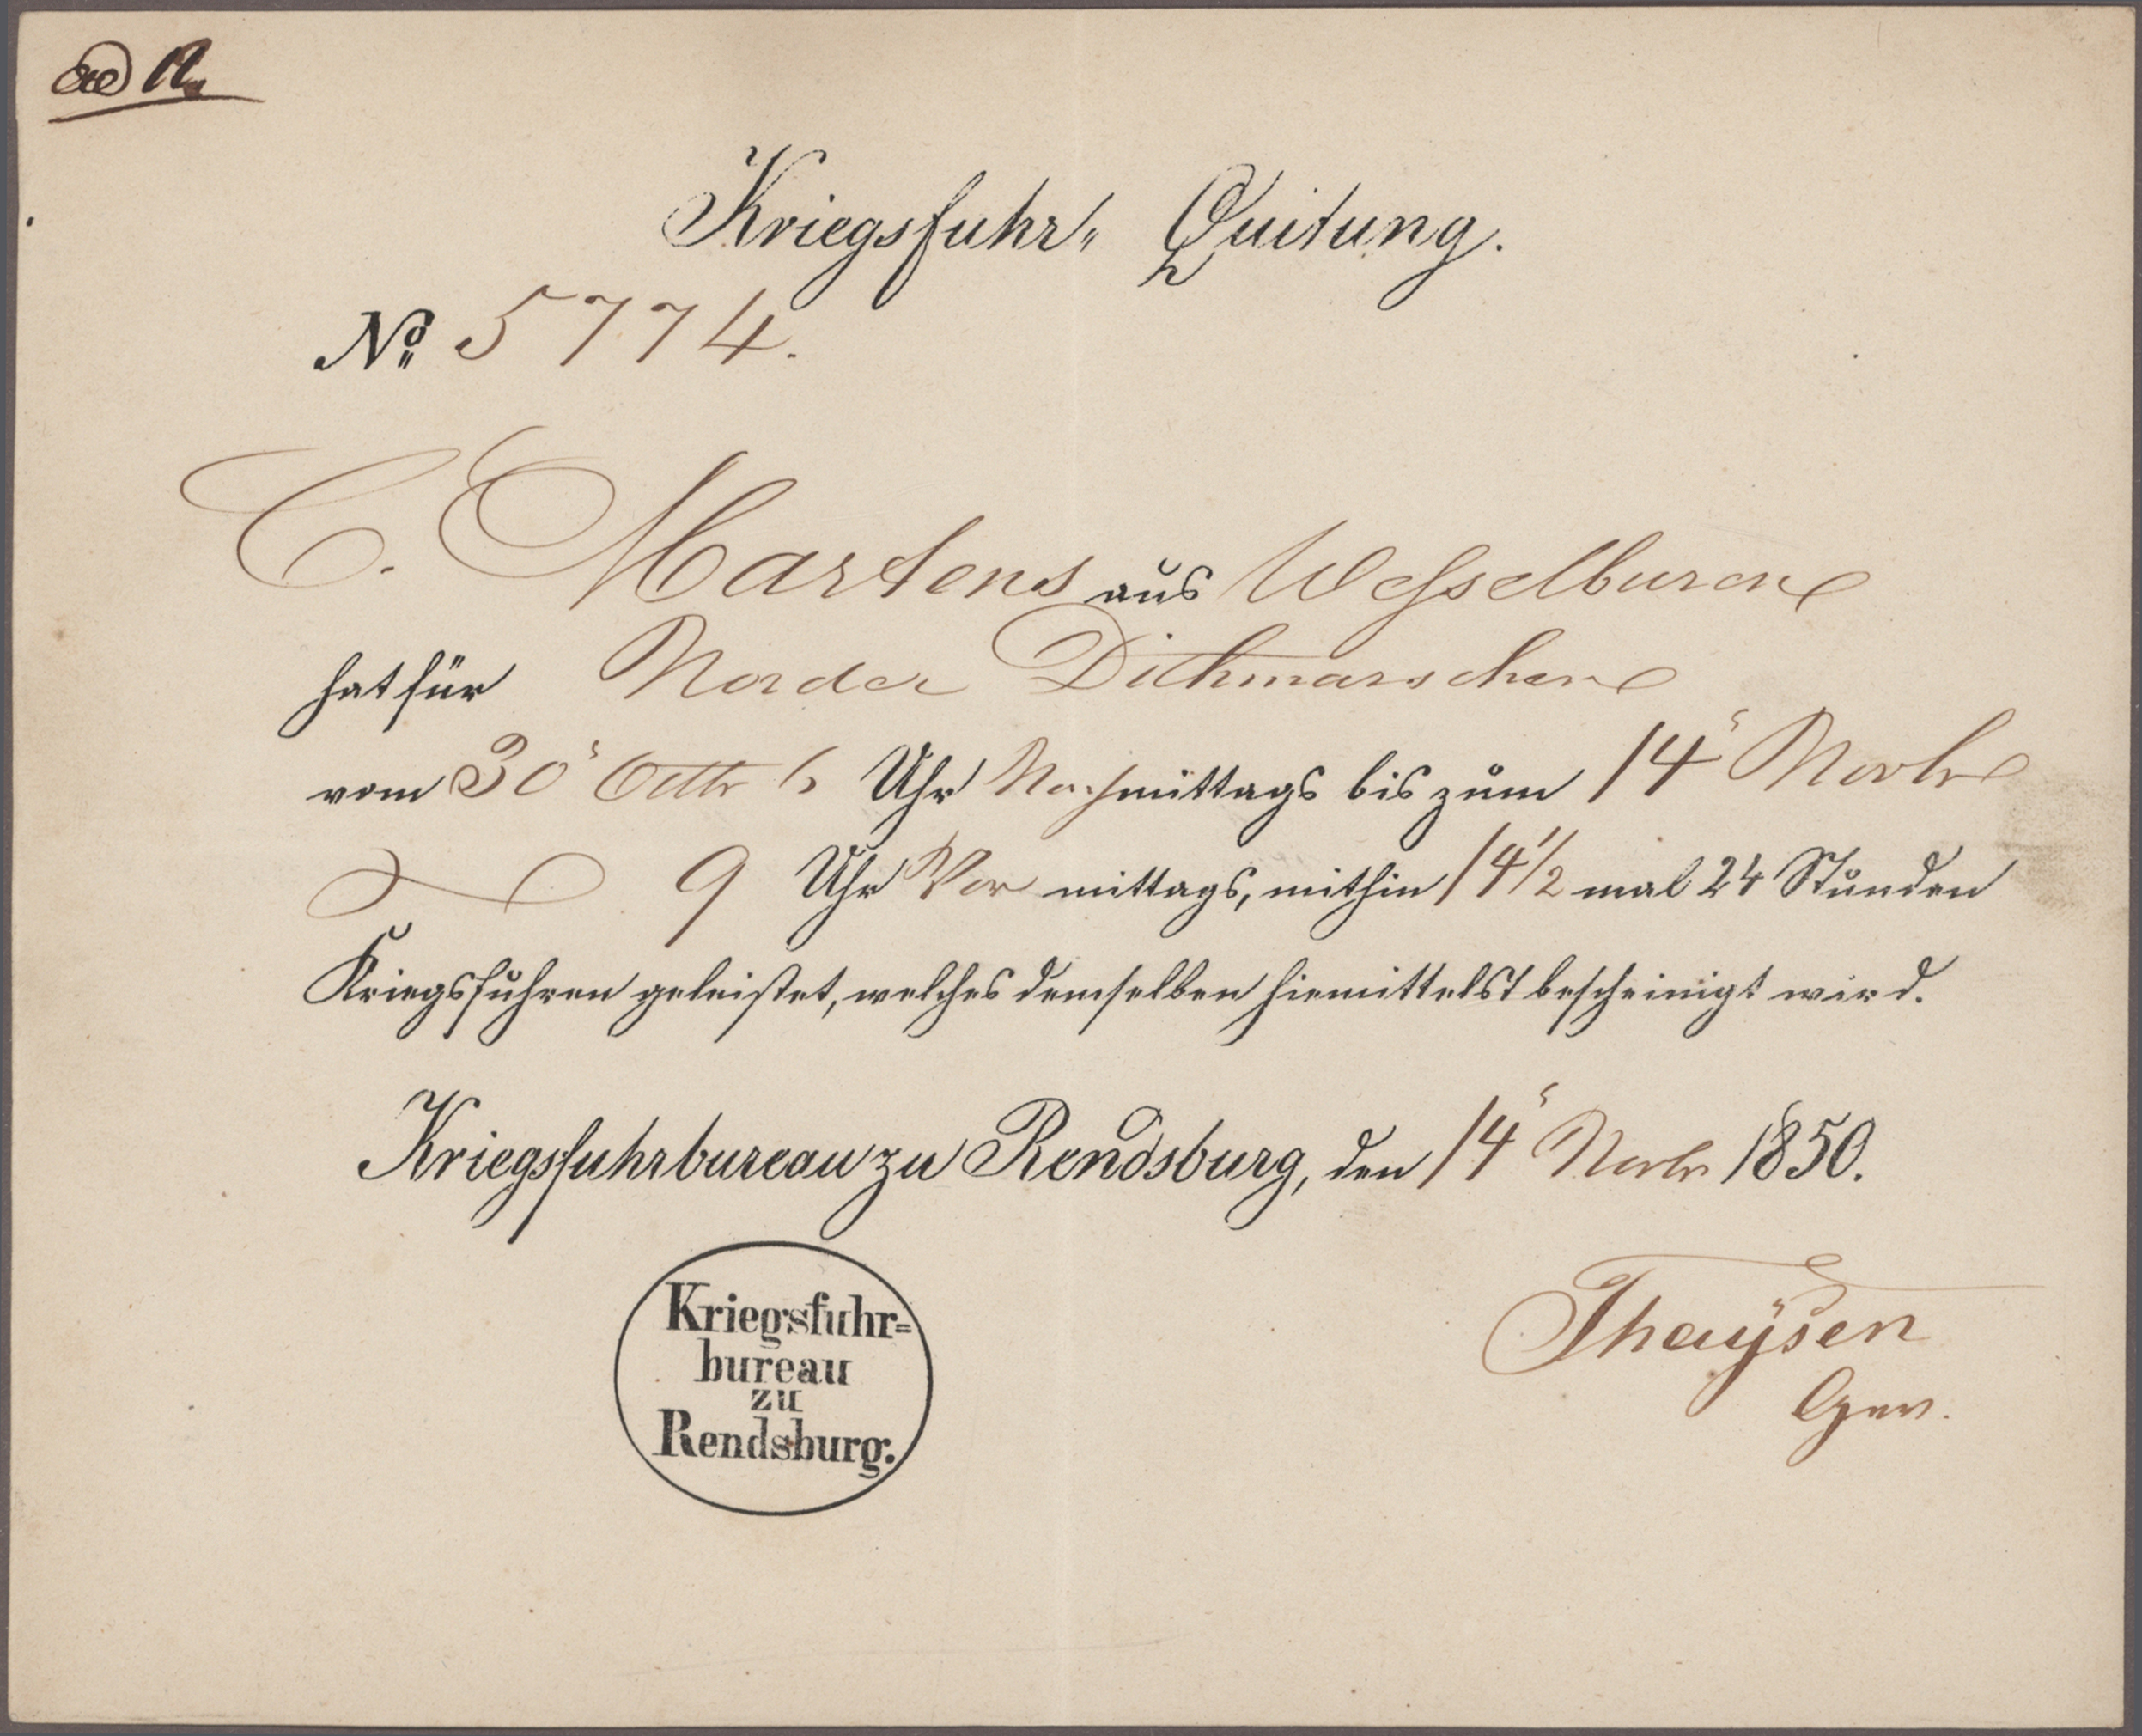 ad
Kriegsfuhr„ Quitung.
No 5774.
C. Martens aus Wesselburen
hat für Norder Dithmarschen
vom 30t Octbr 6 Uhr Nachmittags bis zum 14t Novbr
9 Uhr Vor mittags, mithin 14 1/2 mal 24 Stunden
Kriegsfuhren geleistet, welches demselben hiemittelst bescheinigt wird.
Kriegsfuhrbureau zu Rendsburg, den 14t Novbr 1850.
Kriegsfuhr=
bureau
zu
Rendsburg.
Thaÿsen